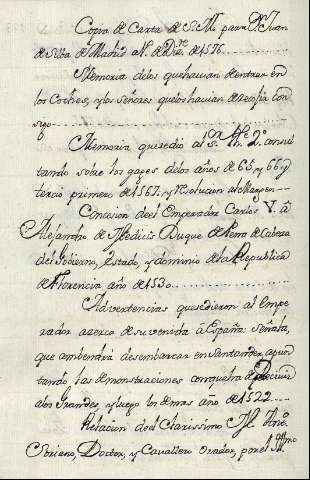 Copia de Carta de S. M. para Dn. Juan
de Silba de Madrid a 1º. de Dizre. de 1576.
Memoria delos que havian de entrar en
los Coches, y los señores que los havian de recivir con
sigo
Memoria que se dio al Sor. Phe. 2º. consul
tando sobre los gages delos años de 65, y 66 y
tercio primero de 1567. y Resolucion al Margen
Concesion deel Emperador Carlos V. â
Alejandro de Medicis Duque de Penna de Cabeza
del Gobierno, Estado, y dominio de la Republica
de Florencia año de 1530
Advertencias que se dieron al Empe
rador azerca de su venida a España: señala,
que ambendria desembarcar en Santander, apun
tando las demonstraciones con que ha de Recivir
a los Grandes, y luego los demas año de 1522
Relacion del Clarissimo Mr. Anto.
Obriano, Doctor, y Cavallero Orador, por el Illmo